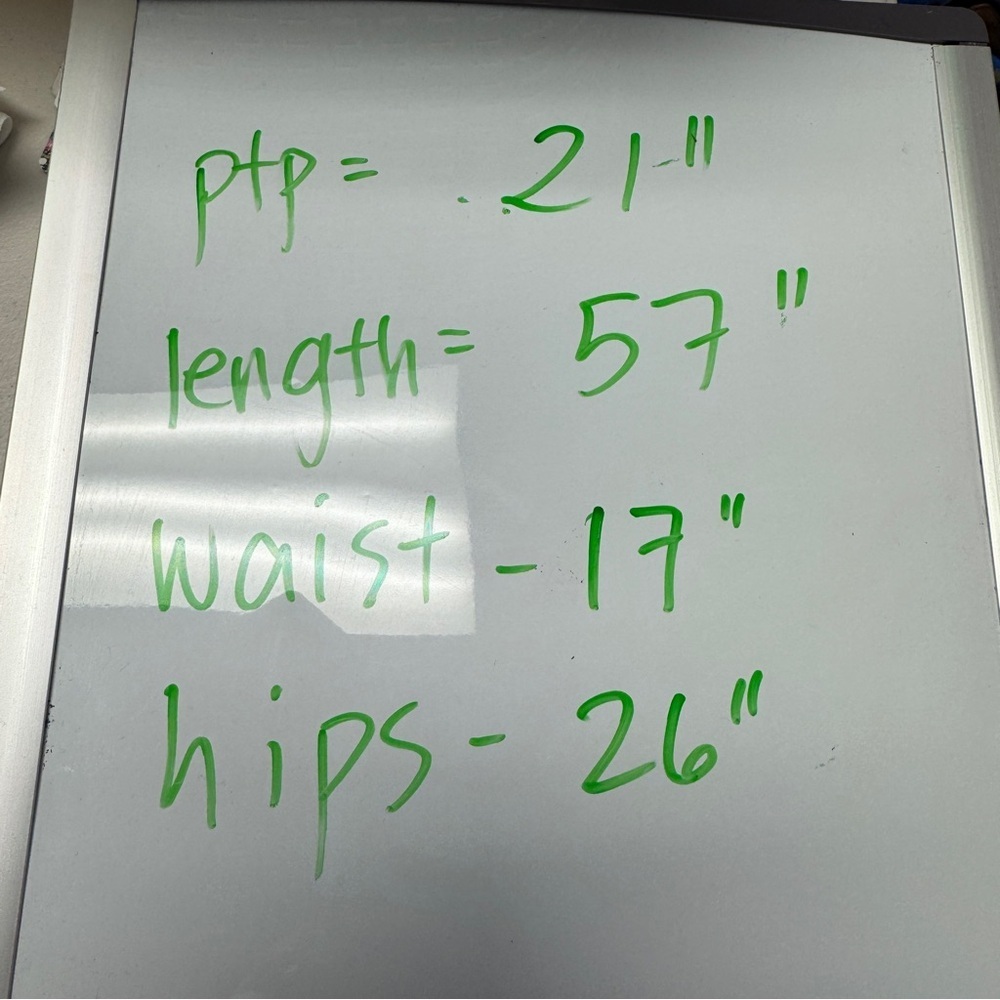 ptp = 21"
length = 57"
waist - 17"
hips - 26"